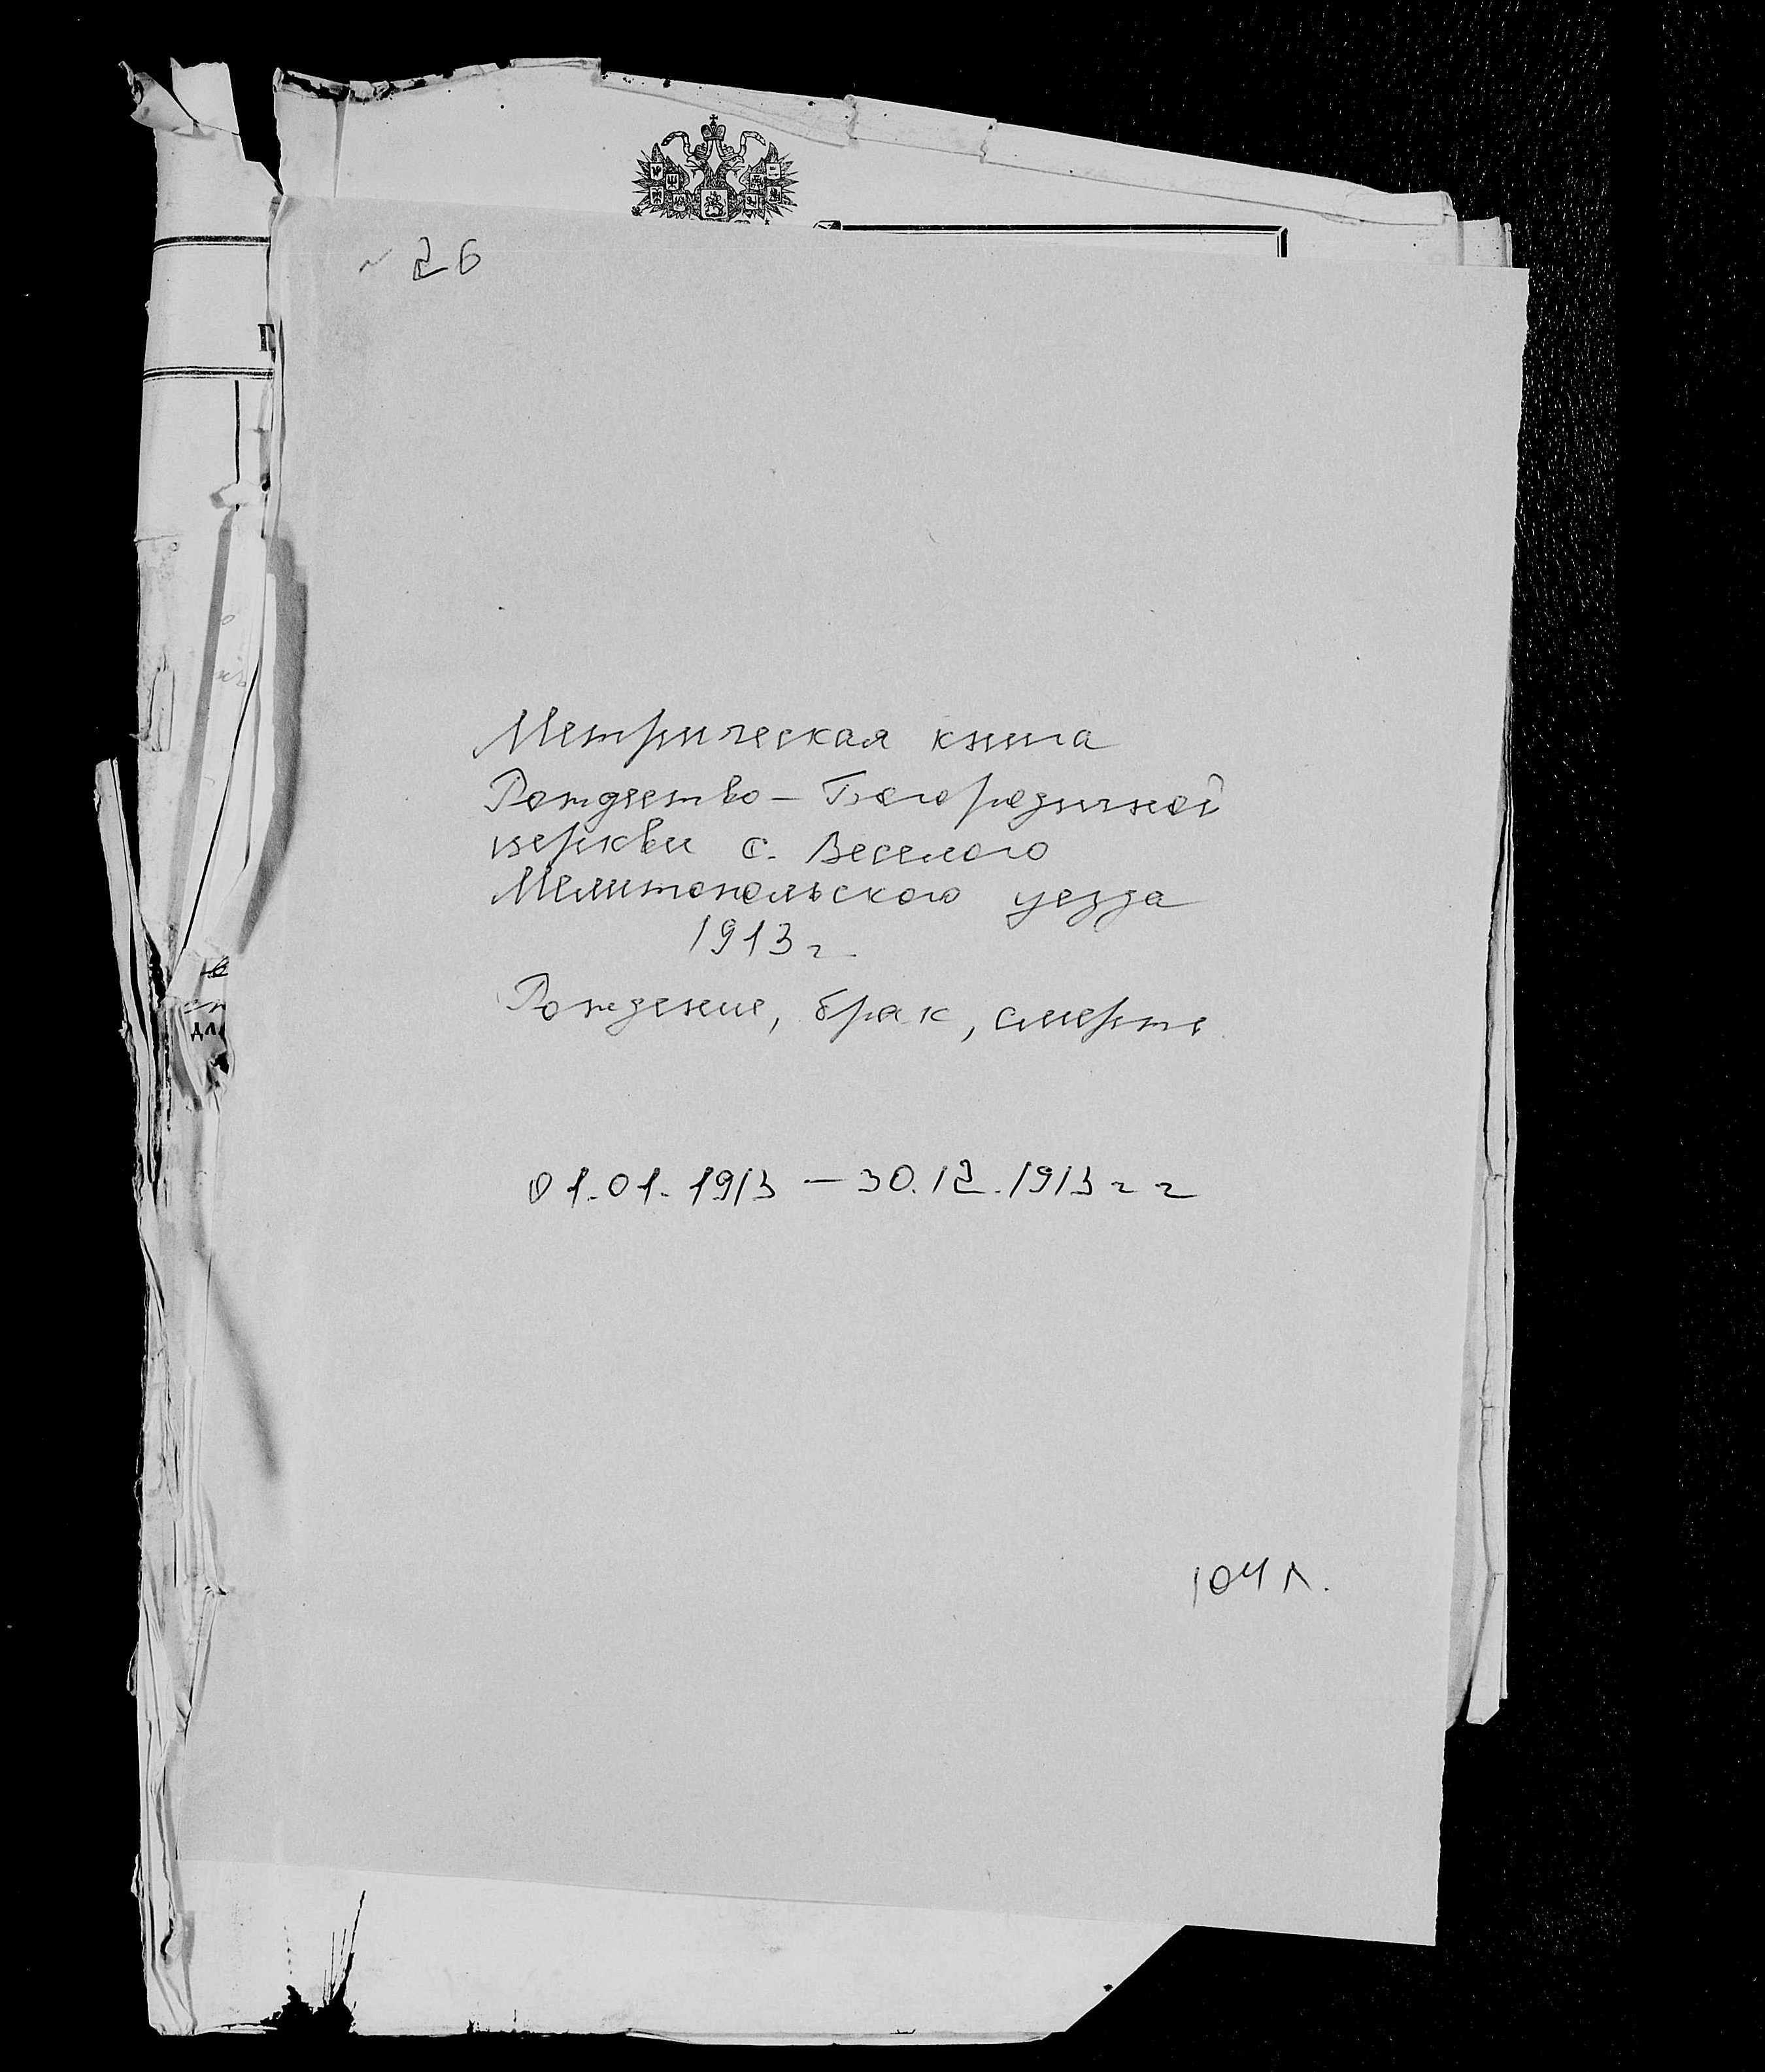 № 26
Метрическая книга
Рождество-Богородичной
церкви с. Веселого
Мелитопольского уезда
1913 г.
Рождение, брак, смерть.
01.01.1913 — 30.12.1913 г г
104 л.
дл